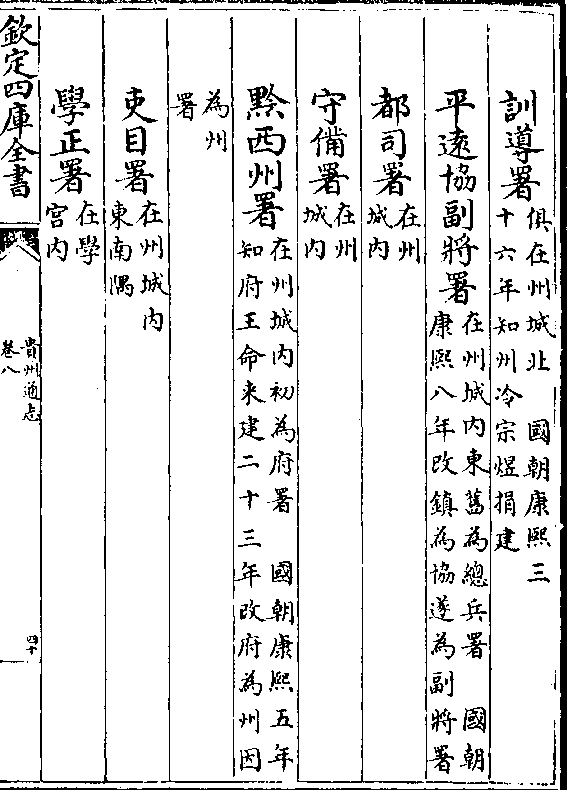 訓導署俱在州城北　國朝康熙三
十六年知州冷宗煜捐建
平遠協副將署在州城内東舊為總兵署　國朝
康熙八年改鎮為協遂為副將署
都司署在州
城内
守備署在州
城内
黔西州署在州城内初為府署　國朝康熙五年
知府王命来建二十三年改府為州因
為州
署
吏目署在州城内
東南隅
學正署在學
宮内
欽定四庫全書
貴州通志
卷八
四十